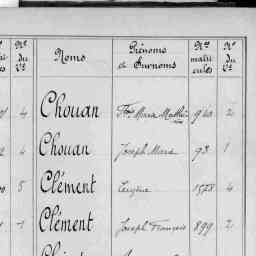 Nº du Vº Noms Prénoms et Surnoms Nos matricules Nº du Vº
4 Chouan Fçois Marie Mathieu 940 2
4 Chouan Joseph Marie 93 1
5 Clément Eugène 1578 4
1 Clément Joseph François 899 2